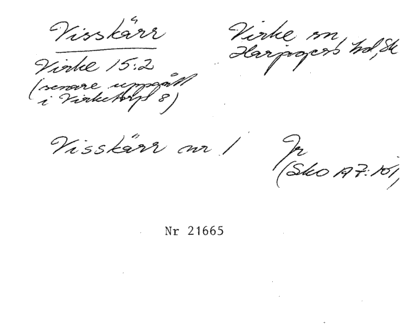 Visskärr
Virke sn,
Harjagers hd, Sk
Virke 15:2
(senare uppgått
i Virketorp 8)
Visskärr nr 1
Jr
(Sko A7:161)
Nr 21665